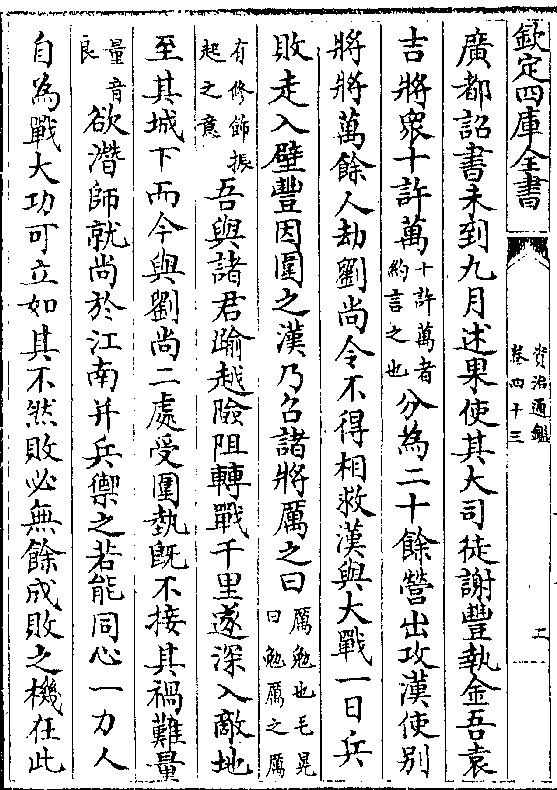 欽定四庫全書
資治通鑑
卷四十三
二
廣都詔書未到九月述果使其大司徒謝豐執金吾袁
吉將衆十許萬十許萬者約言之也分為二十餘營出攻漢使别
將將萬餘人劫劉尚令不得相救漢與大戰一日兵
敗走入壁豐因圍之漢乃召諸將厲之曰厲勉也毛晃曰勉厲之厲
有修飾振起之意吾與諸君踰越險阻轉戰千里遂深入敵地
至其城下而今與劉尚二處受圍埶既不接其禍難量
量音良欲潛師就尚於江南并兵禦之若能同心一力人
自為戰大功可立如其不然敗必無餘成敗之機在此